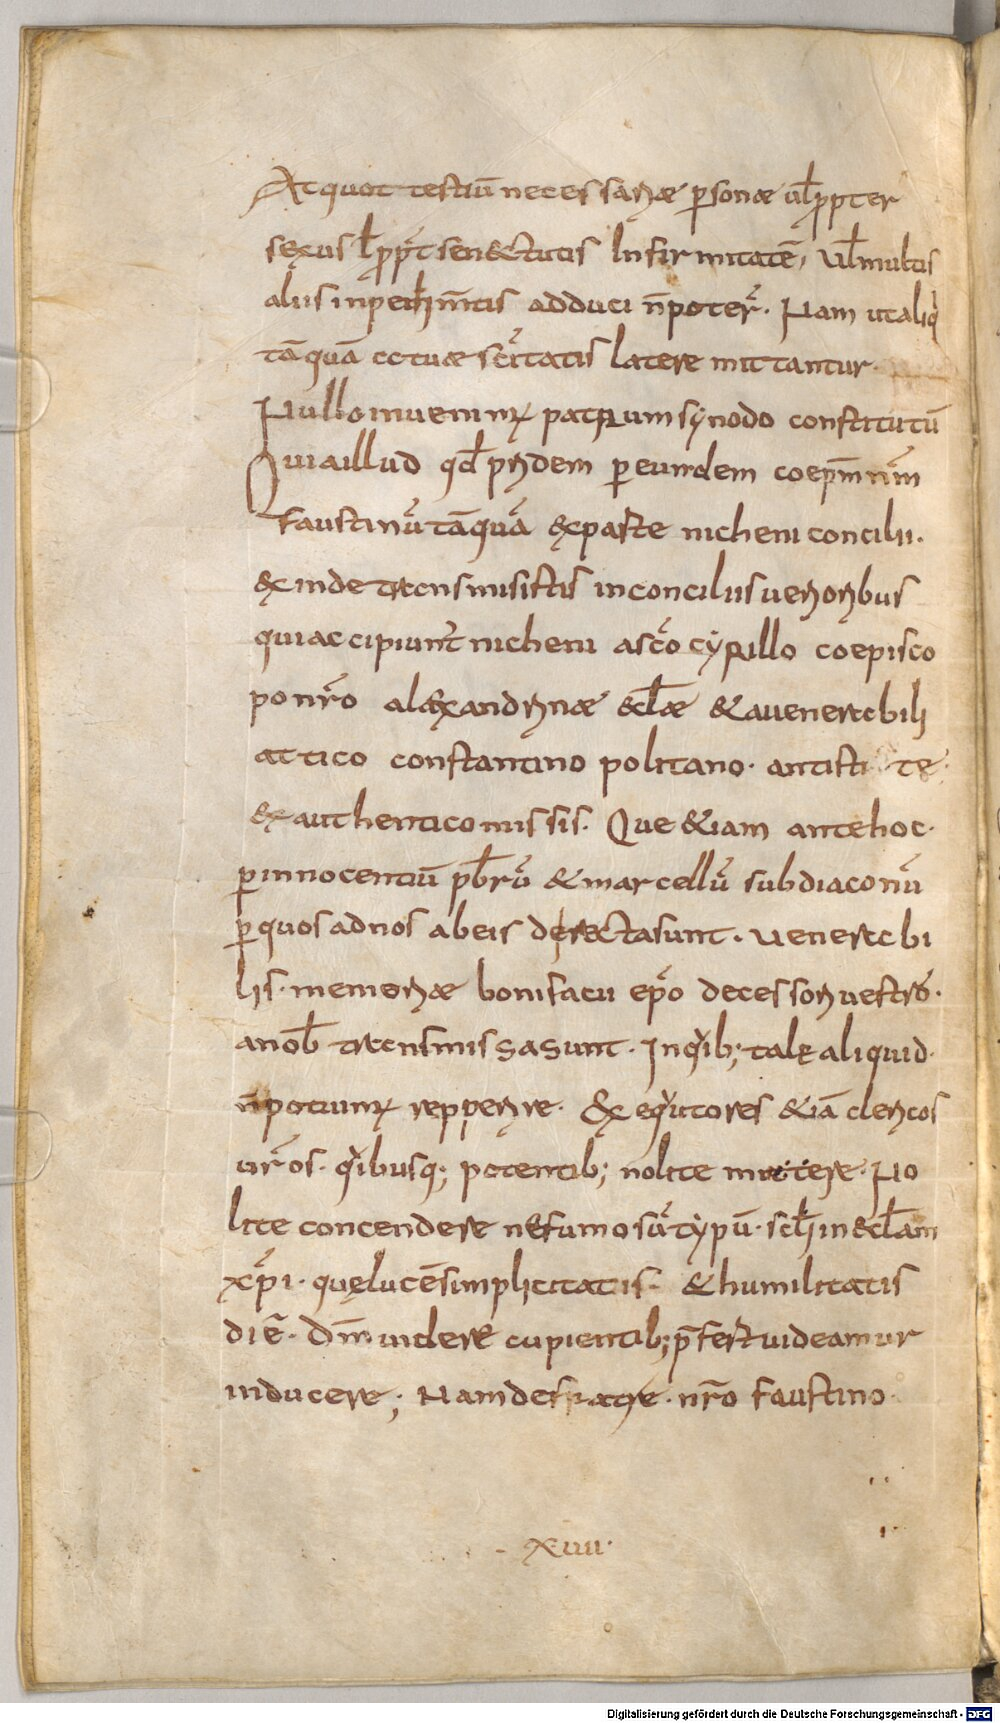 At quot testiū necessariæ p̱sonæ ul̄ p̱pter
sęxus l̄ p̱pt̄ sen&tutis Infirmitatē, ul̄ multis
aliis inpedim̄tis adduci n̄ poter̄. Nam ut aliq̄
tā quā a tuae scītatis latere mittantur.
Nullo inuenim; patrum sẏnodo constitutū
Quia illud qd̄ pridem p̱ eundem coep̄m nr̄m
Faustinū tā quā ex paste nicheni concilii.
& inde transmisistis in conciliis uerioribus
qui accipiunt̄ nicheni a sc̄o cẏrillo coepisco
po nr̄o alexandrinæ &cl̄æ & a uenerabili
attico constantino politano. antisti te
ex authentico missis. Que &iam ante hoc.
p̱ innocentiū pb̄rū & marcellū subdiaconū
p̱ quos ad nos ab eis derectasunt. uenerabi
lis. memoriæ bonifacii ep̄o decessori uestrō.
a nob̄ transmissa sunt. In qib; tale aliquid.
n̄ potuim; repperire. Exequtores &iā clericos
ur̄os. qibusq; potentib; nolite mittere. No
lite concendere ne fumosū tẏpū. scl̄i in &cl̄am
xp̄i. quę lucē simplicitatis. & humilitatis
diē. Dm̄ uidere cupientib; p̄fert uideamur
inducere; Nam de fratre. nr̄o faustino.
xiiii.
Digitalisierung gefördert durch die Deutsche Forschungsgemeinschaft - DFG